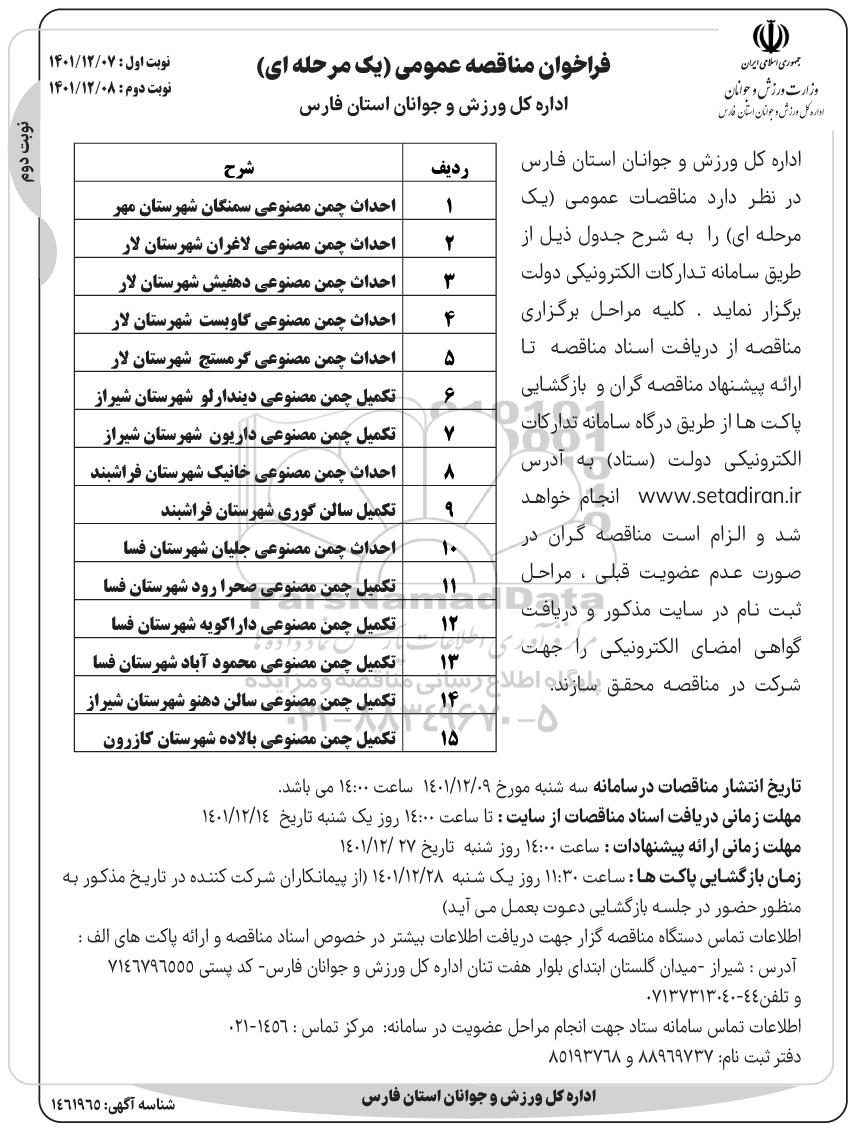 جمهوری اسلامی ایران
وزارت ورزش و جوانان
اداره کل ورزش و جوانان استان فارس
فراخوان مناقصه عمومی (یک مرحله ای)
اداره کل ورزش و جوانان استان فارس
نوبت اول : ۱۴۰۱/۱۲/۰۷
نوبت دوم : ۱۴۰۱/۱۲/۰۸
نوبت دوم
اداره کل ورزش و جوانان استان فارس
در نظر دارد مناقصات عمومی (یک
مرحله ای) را به شرح جدول ذیل از
طریق سامانه تدارکات الکترونیکی دولت
برگزار نماید . کلیه مراحل برگزاری
مناقصه از دریافت اسناد مناقصه تا
ارائه پیشنهاد مناقصه گران و بازگشایی
پاکت ها از طریق درگاه سامانه تدارکات
الکترونیکی دولت (ستاد) به آدرس
www.setadiran.ir انجام خواهد
شد و الزام است مناقصه گران در
صورت عدم عضویت قبلی ، مراحل
ثبت نام در سایت مذکور و دریافت
گواهی امضای الکترونیکی را جهت
شرکت در مناقصه محقق سازند.
ردیف شرح
۱ احداث چمن مصنوعی سمنگان شهرستان مهر
۲ احداث چمن مصنوعی لاغران شهرستان لار
۳ احداث چمن مصنوعی دهفیش شهرستان لار
۴ احداث چمن مصنوعی گاوبست شهرستان لار
۵ احداث چمن مصنوعی گرمستج شهرستان لار
۶ تکمیل چمن مصنوعی دیندارلو شهرستان شیراز
۷ تکمیل چمن مصنوعی داریون شهرستان شیراز
۸ احداث چمن مصنوعی خانیک شهرستان فراشبند
۹ تکمیل سالن گوری شهرستان فراشبند
۱۰ احداث چمن مصنوعی جلیان شهرستان فسا
۱۱ تکمیل چمن مصنوعی صحرا رود شهرستان فسا
۱۲ تکمیل چمن مصنوعی داراکویه شهرستان فسا
۱۳ تکمیل چمن مصنوعی محمود آباد شهرستان فسا
۱۴ تکمیل چمن مصنوعی سالن دهنو شهرستان شیراز
۱۵ تکمیل چمن مصنوعی بالاده شهرستان کازرون
ParsNamadData
مرکز فرآوری اطلاعات پارس نماد داده ها
پایگاه اطلاع رسانی مناقصه و مزایده
۰۲۱-۸۸۳۴۹۶۷۰-۵
تاریخ انتشار مناقصات درسامانه سه شنبه مورخ ۱۴۰۱/۱۲/۰۹ ساعت ۱۴:۰۰ می باشد.
مهلت زمانی دریافت اسناد مناقصات از سایت : تا ساعت ۱۴:۰۰ روز یک شنبه تاریخ ۱۴۰۱/۱۲/۱۴
مهلت زمانی ارائه پیشنهادات : ساعت ۱۴:۰۰ روز شنبه تاریخ ۲۷ /۱۴۰۱/۱۲
زمان بازگشایی پاکت ها : ساعت ۱۱:۳۰ روز یک شنبه ۱۴۰۱/۱۲/۲۸ (از پیمانکاران شرکت کننده در تاریخ مذکور به
منظور حضور در جلسه بازگشایی دعوت بعمل می آید)
اطلاعات تماس دستگاه مناقصه گزار جهت دریافت اطلاعات بیشتر در خصوص اسناد مناقصه و ارائه پاکت های الف :
آدرس : شیراز -میدان گلستان ابتدای بلوار هفت تنان اداره کل ورزش و جوانان فارس- کد پستی ۷۱۴۶۷۹۶۵۵۵
و تلفن۴۴-۰۷۱۳۷۳۱۳۰۴۰
اطلاعات تماس سامانه ستاد جهت انجام مراحل عضویت در سامانه: مرکز تماس : ۱۴۵۶-۰۲۱
دفتر ثبت نام: ۸۸۹۶۹۷۳۷ و ۸۵۱۹۳۷۶۸
اداره کل ورزش و جوانان استان فارس
شناسه آگهی: ۱۴۶۱۹۶۵